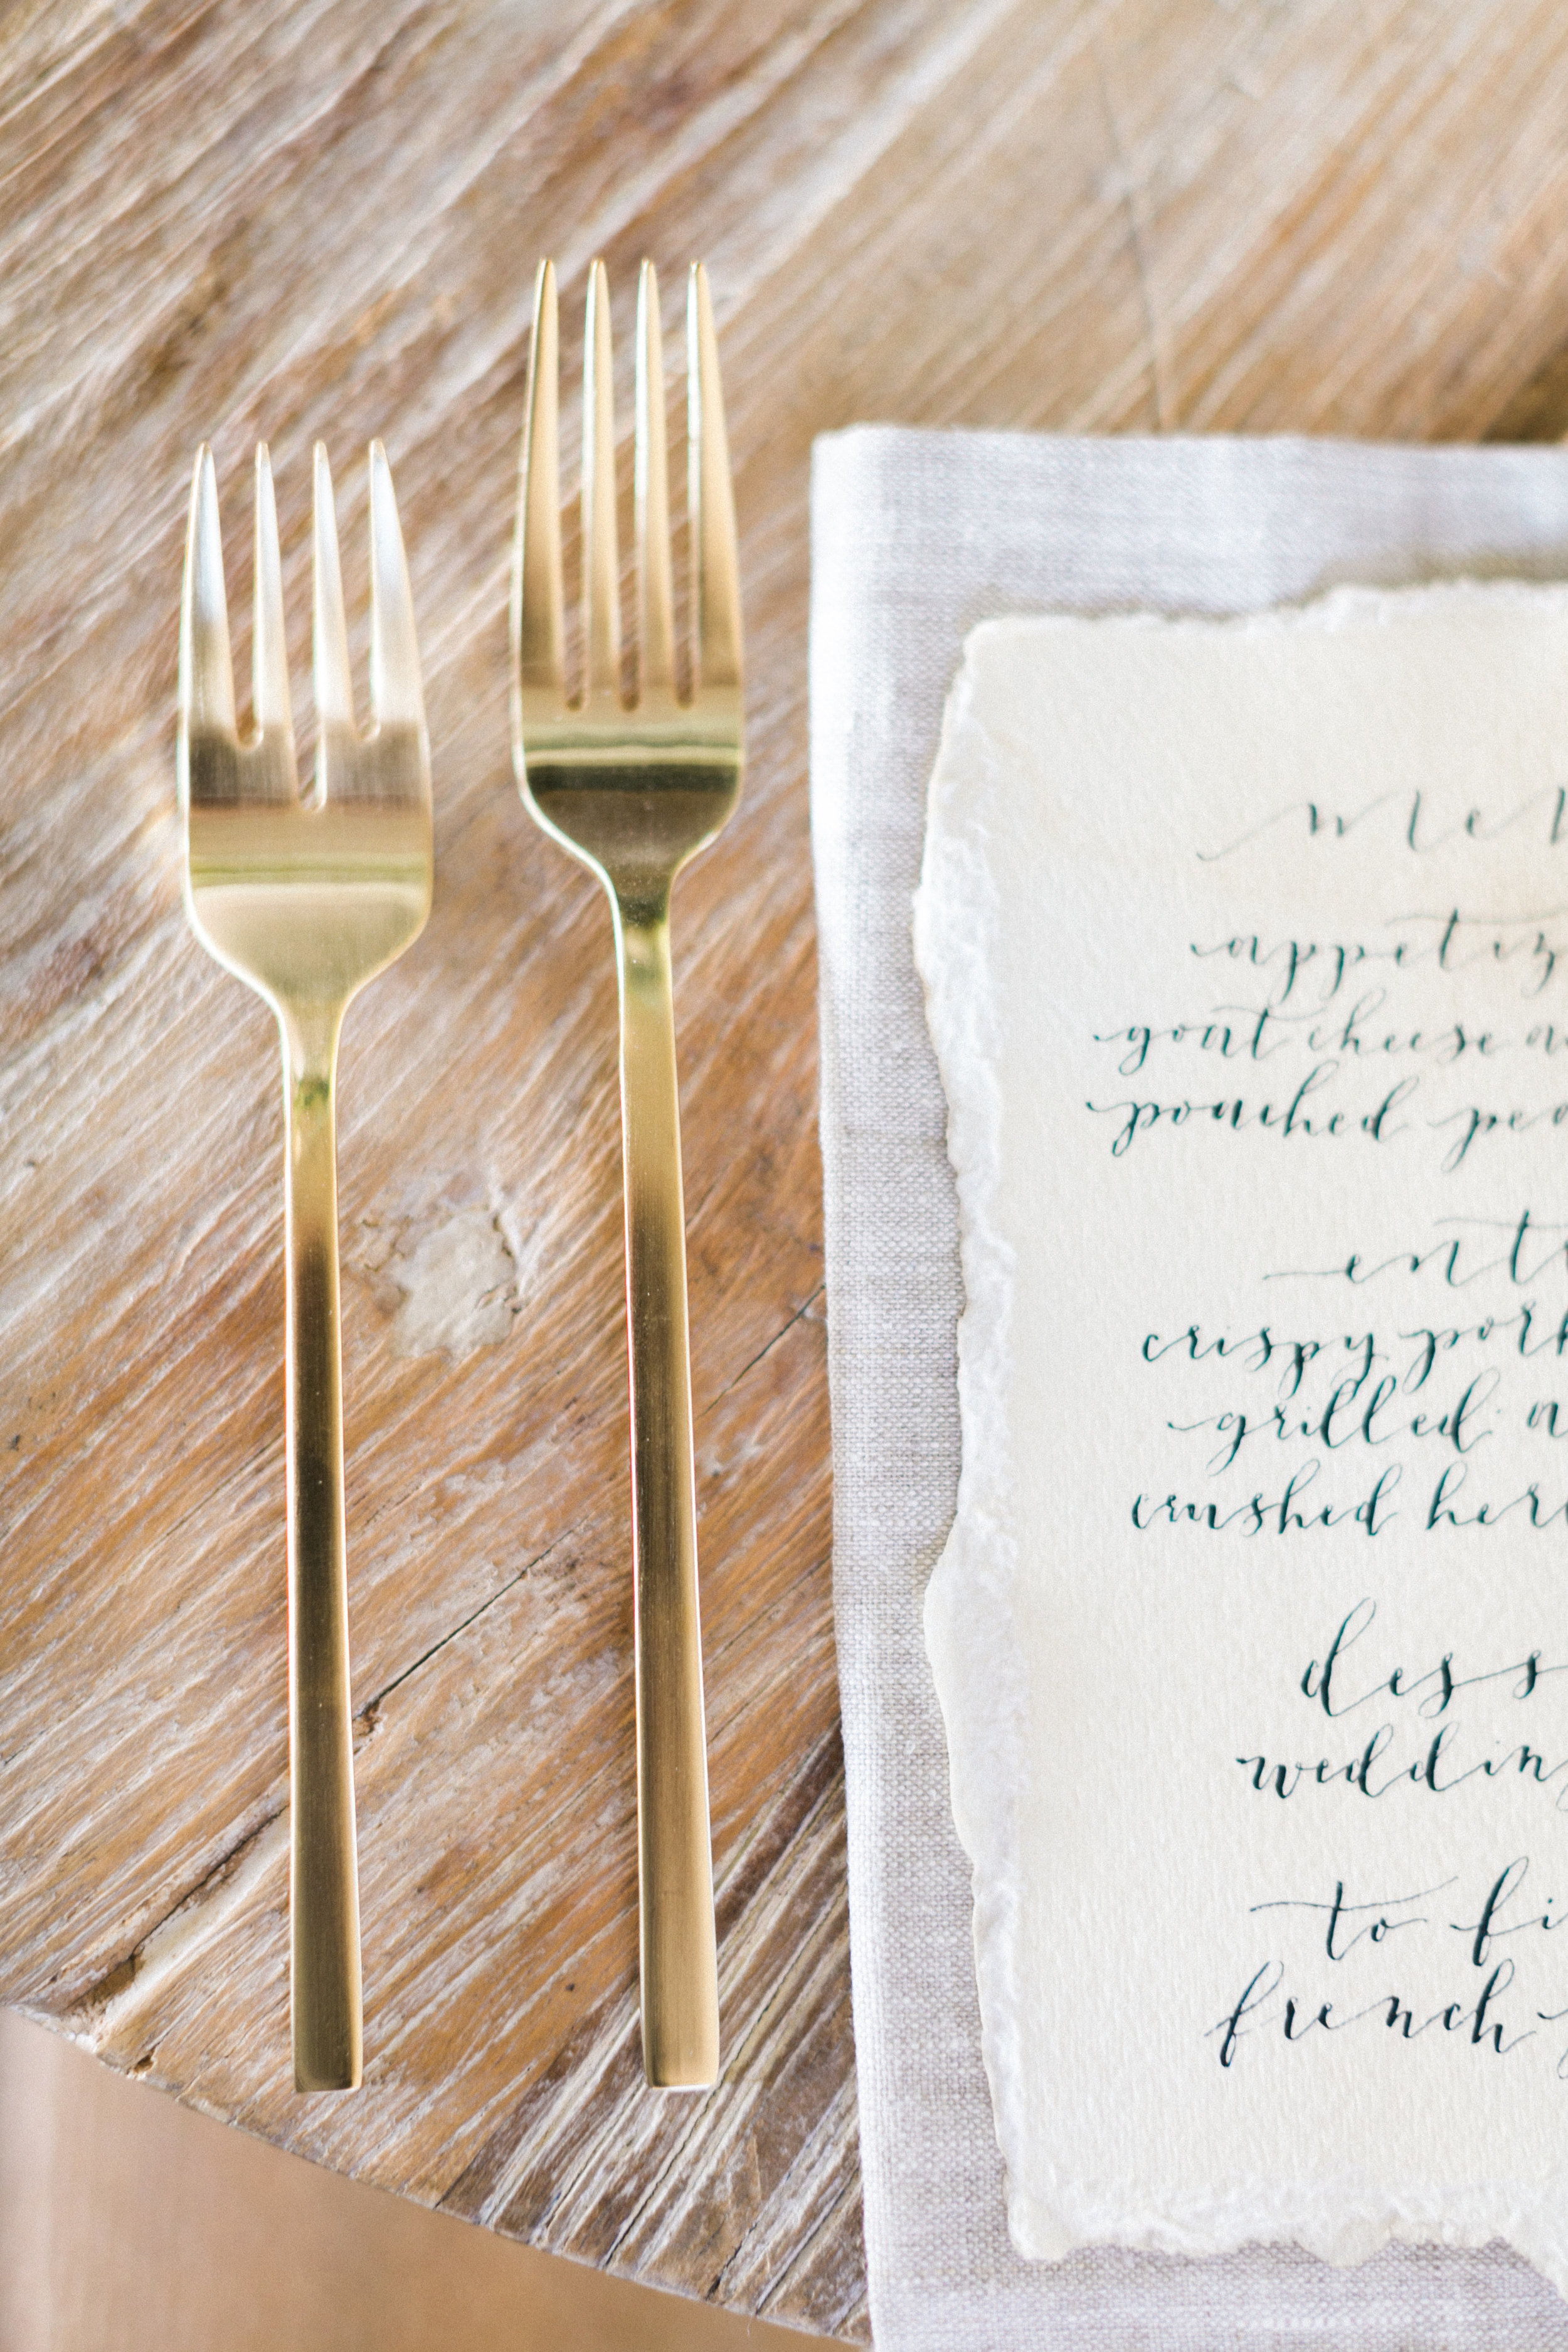 appetiz
goat cheese a
poached pea
ent
crispy pork
grilled a
crushed her
dess
weddin
to fi
french